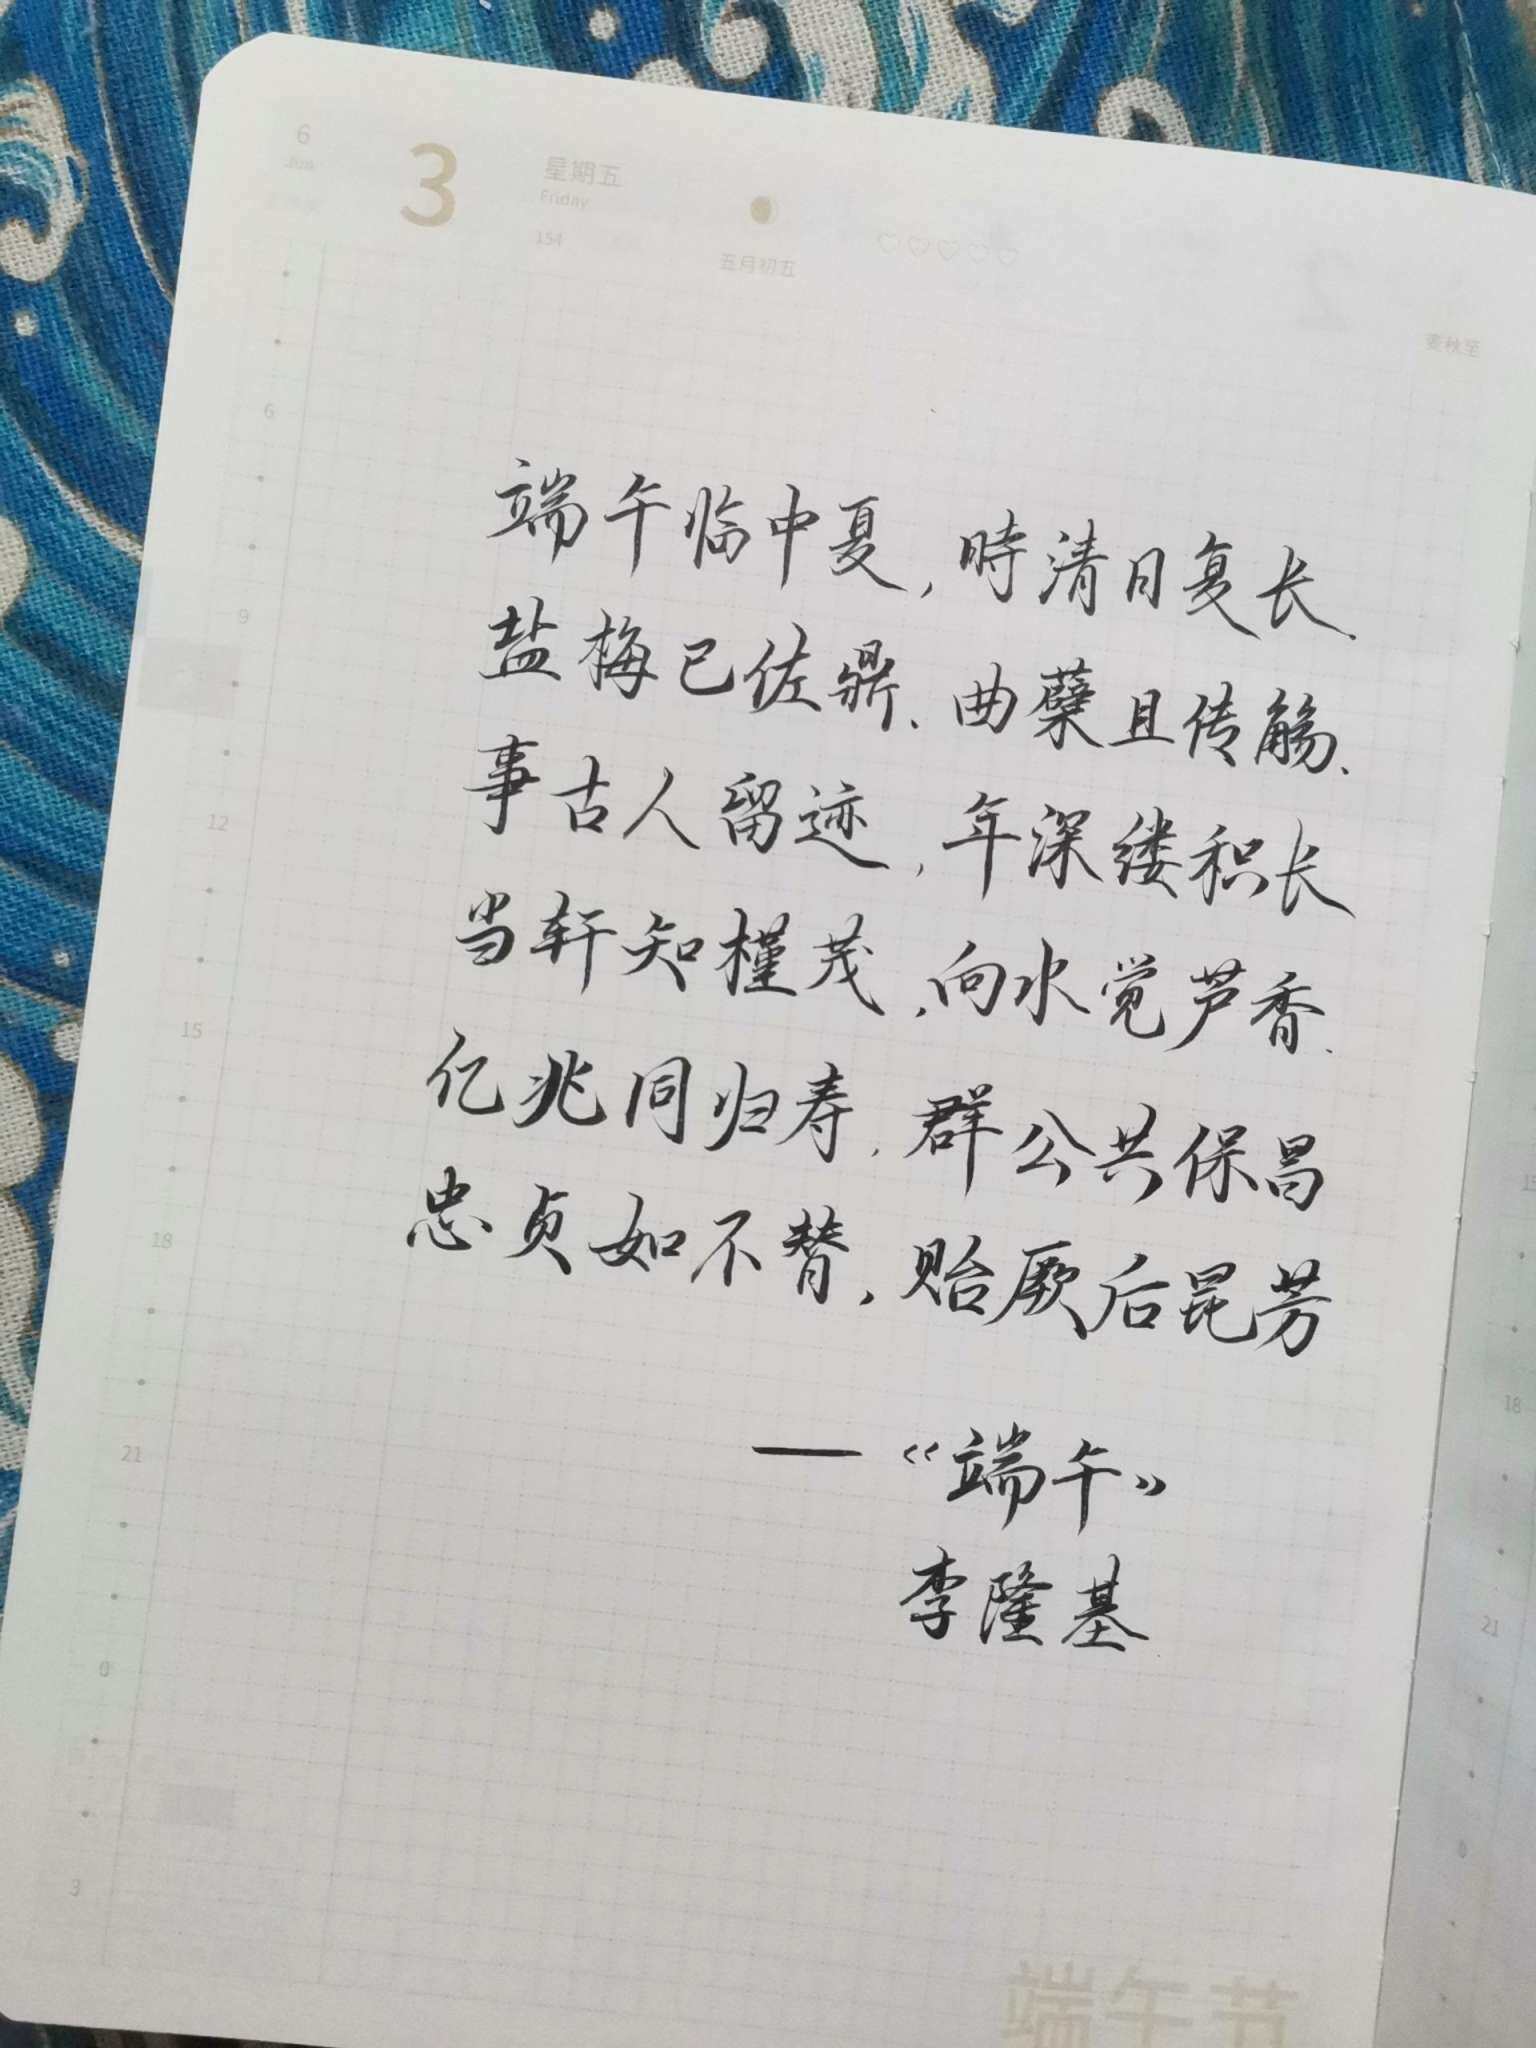 6
Jun
3
星期五
Friday
154
五月初五
麦秋至
端午临中夏,時清日复长.
盐梅已佐鼎、曲蘖且传觞、
事古人留迹,年深缕积长
当轩知槿茂,向水觉芦香.
亿兆同归寿,群公共保昌
忠贞如不替,贻厥后昆芳
—《端午》
李隆基
6
9
12
15
18
21
0
3
端午节
15
18
21
0